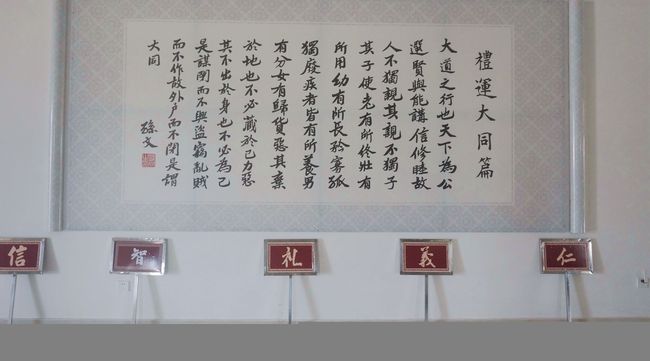 禮運大同篇
大道之行也天下為公
選賢與能講信修睦故
人不獨親其親不獨子
其子使老有所終壯有
所用幼有所長矜寡孤
獨廢疾者皆有所養男
有分女有歸貨惡其棄
於地也不必藏於己力惡
其不出於身也不必為己
是謀閉而不興盜竊亂賊
而不作故外戶而不閉是謂
大同
孫文
仁
義
礼
智
信